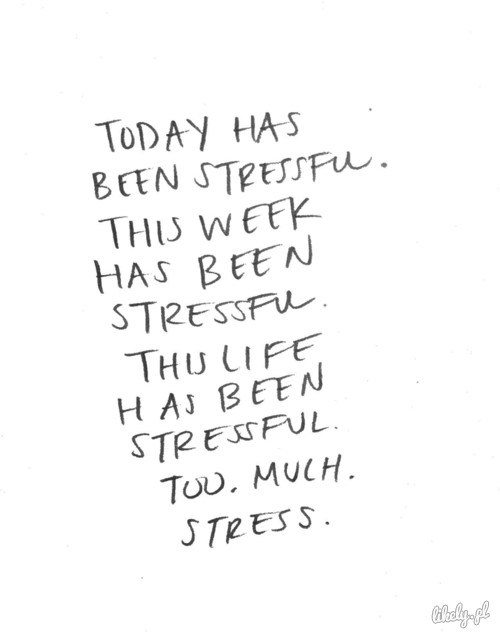 TODAY HAS
BEEN STRESSFUL.
THIS WEEK
HAS BEEN
STRESSFUL.
THIS LIFE
HAS BEEN
STRESSFUL.
TOO. MUCH.
STRESS.
likely.pl